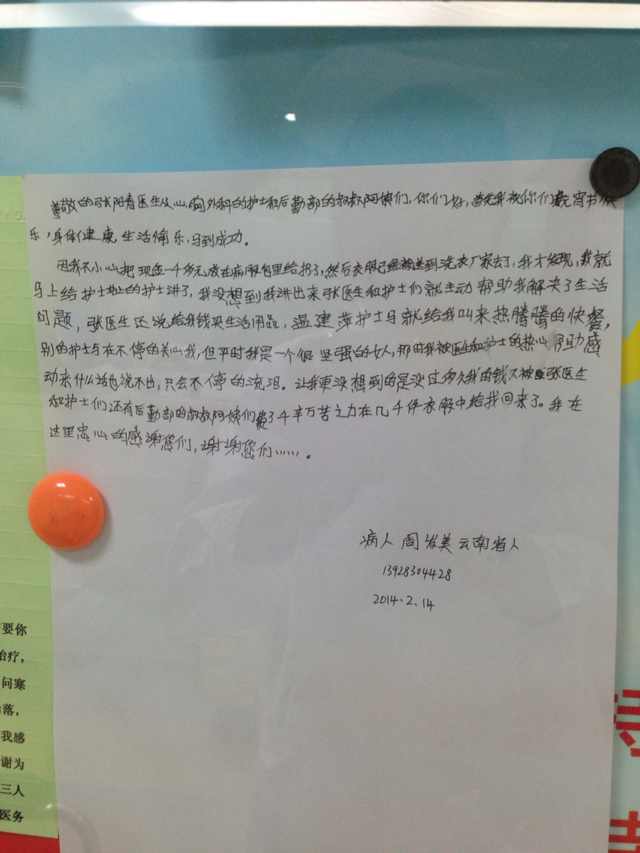 尊敬的张阳春医生及心胸外科的护士和后勤部的叔叔阿姨们,你们好,首先我祝你们元宵节快
乐,身体健康 生活愉乐,马到成功。
因我不小心把现金一千多元放在病服包里给扔了,然后衣服已经被送到洗衣厂家去了,我才发现,我就
马上给护士站的护士讲了,我没想到我讲出来张医生和护士们就主动帮助我解决了生活
问题,张医生还说给我钱买生活用品,温建萍护士马就给我叫来热腾腾的快餐,
别的护士也在不停的关心我,但平时我是一个很坚强的女人,那时我被医生和护士的热心帮助感
动来什么话也说不出,只会不停的流泪。让我更没想到的是没过多久我的钱又被张医生
和护士们还有后勤部的叔叔阿姨们费了千辛万苦之力在几千件衣服中给我回来了。我在
这里忠心的感谢您们,谢谢您们……。
病人 周发美 云南省人
13928304428
2014.2.14
要你
治疗,
问寒
落,
我感
谢为
三人
医务